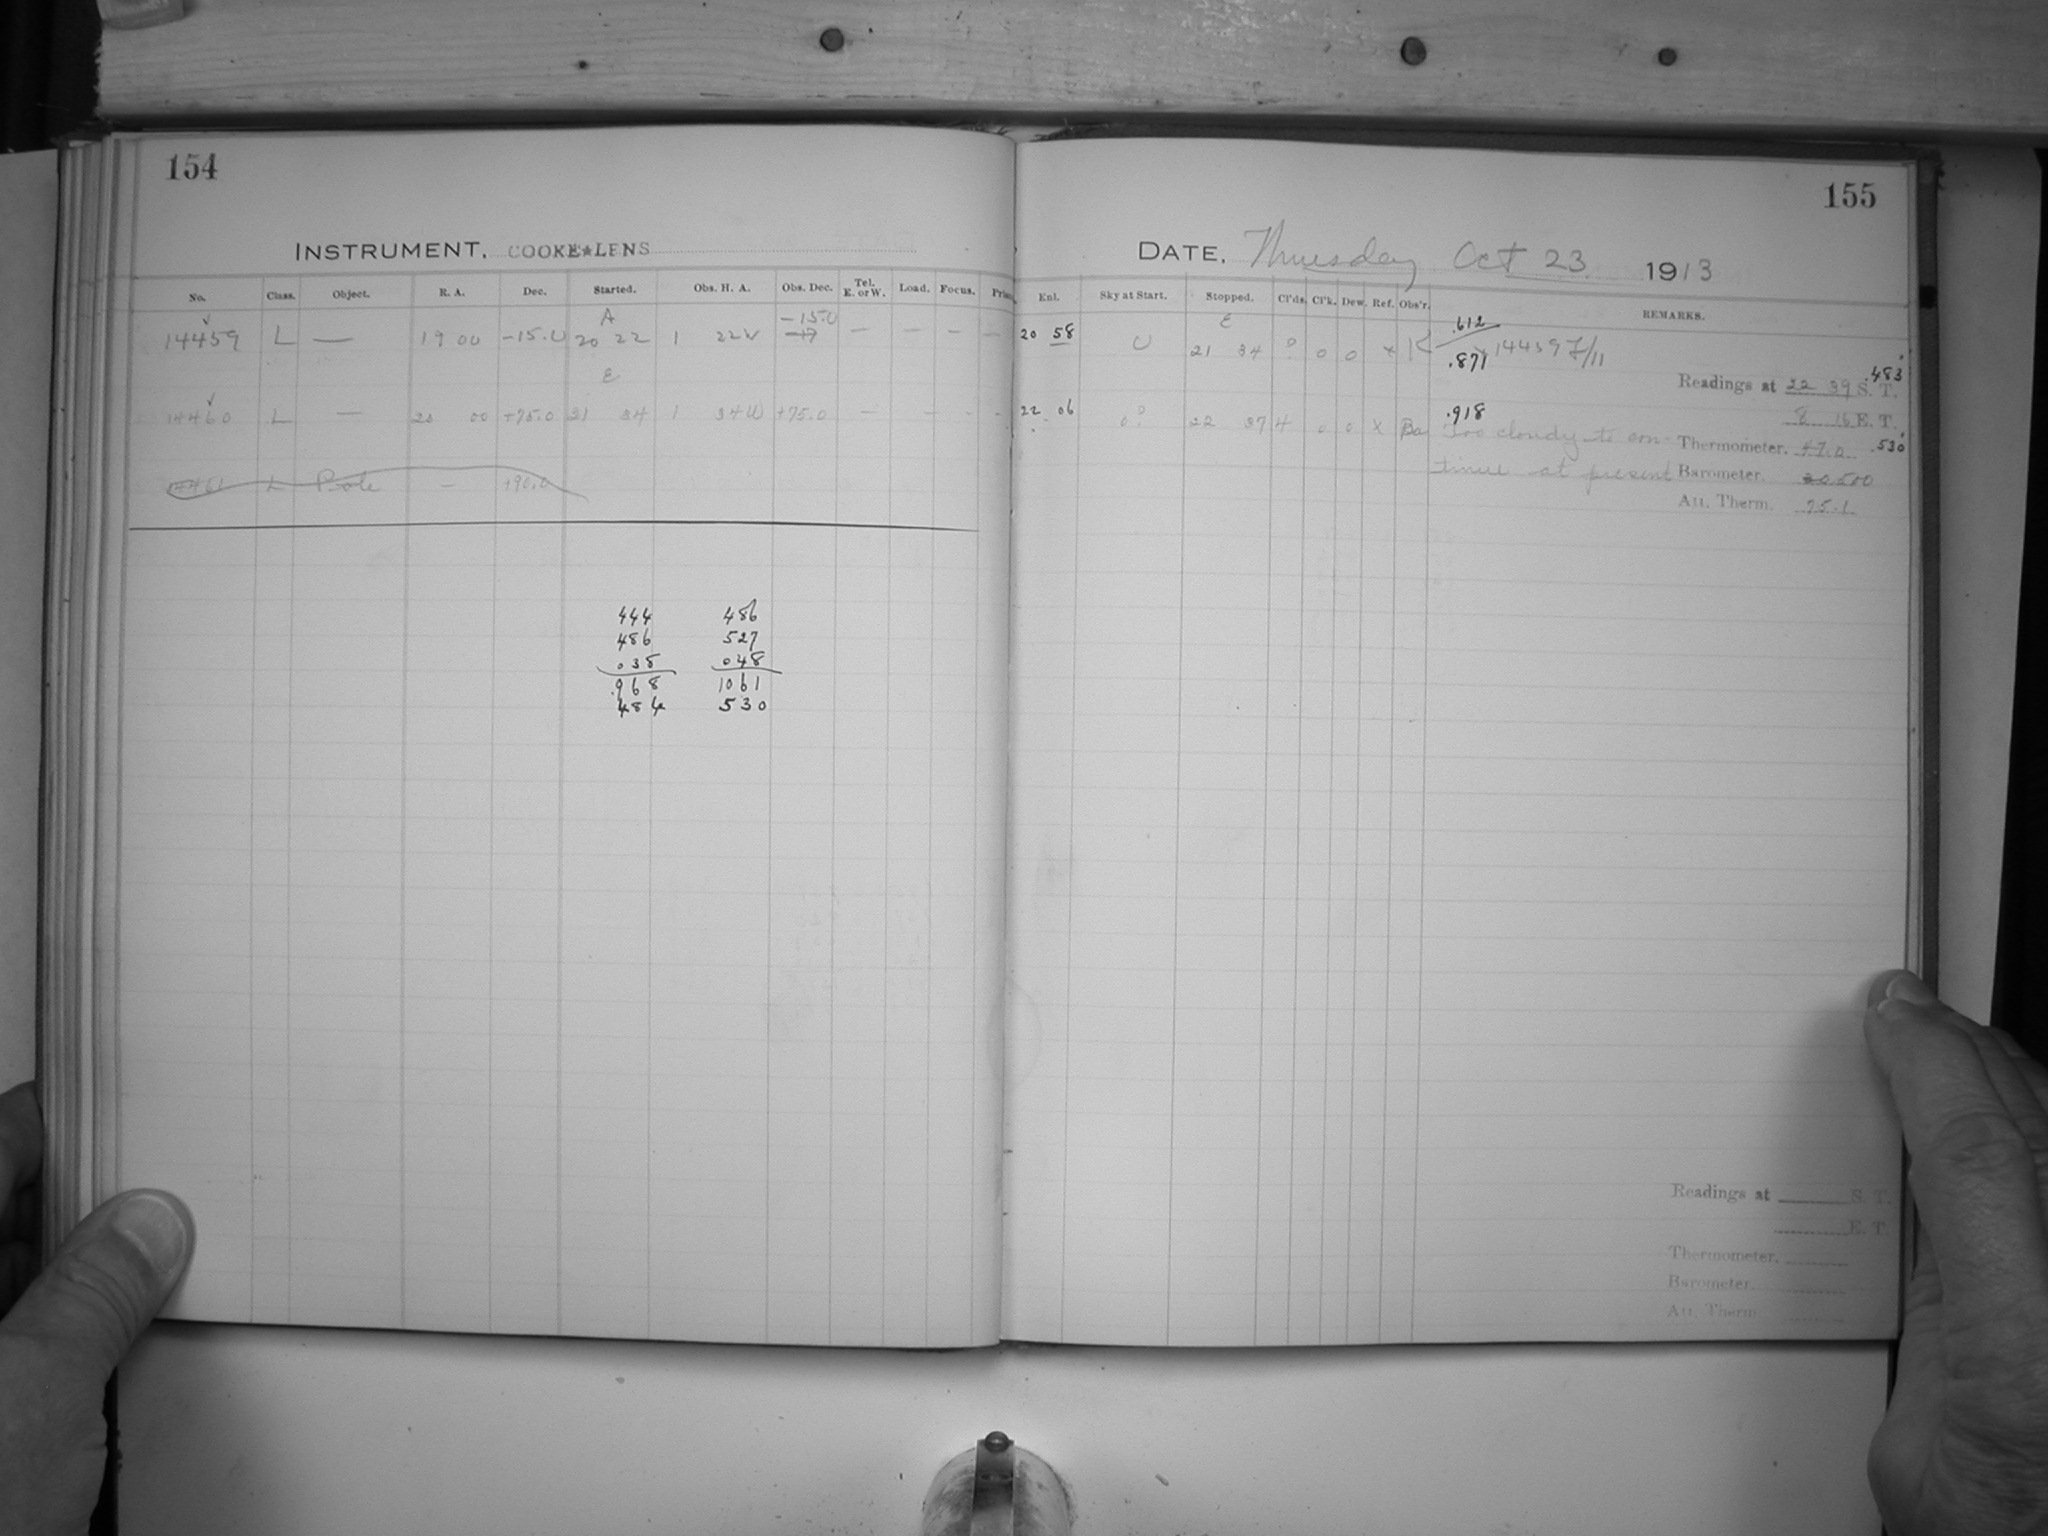 154
INSTRUMENT. COOKE★LENS
No. Class. Object. R. A. Dec. Started. Obs. H. A. Obs. Dec. Tel. E. or W. Load. Focus.
A -15.0
14459 L — 19 00 -15.0 20 22 1 22W — — — —
E
14460 L — 20 00 +75.0 21 34 1 34W +75.0 — — - -
14461 L Pole — +90.0
444 486
486 527
038 048
.968 1061
484 530
155
DATE. Thursday Oct 23 1913
Enl. Sky at Start. Stopped. Cl'ds. Cl'k. Dew. Ref. Obs'r. REMARKS.
E .612
20 58 U 21 34 ? 0 0 x K 14459 F/11
.871
.483
Readings at 22 39 S. T.
8 16 E. T.
22 06 0? 22 37 4 0 0 X Ba .918
Too cloudy to con- Thermometer. 47.0 .530
tinue at present Barometer. 30.500
Att. Therm. 75.1
Readings at S. T.
E. T.
Thermometer.
Barometer.
Att. Therm.